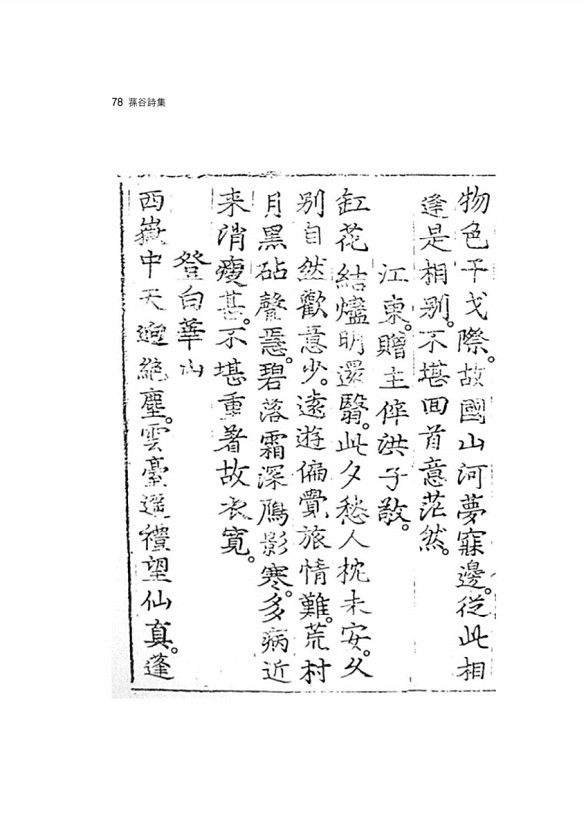 78 蓀谷詩集
物色干戈際。故國山河夢寐邊。從此相
逢是相别。不堪回首意茫然。
江東。贈主倅洪子敬。
缸花結燼明還翳。此夕愁人枕未安。久
别自然歡意少。遠遊偏覺旅情難。荒村
月黑砧聲急。碧落霜深鴈影寒。多病近
来消瘦甚。不堪重著故衣寛。
登白華山
西嶽中天逈絶塵。雲臺遥禮望仙真。蓬